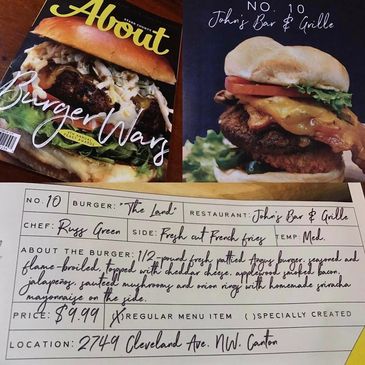 About
Burger Wars
NO. 10
John's Bar & Grille
NO. 10 BURGER: "The Land" RESTAURANT: John's Bar & Grille
CHEF: Russ Green SIDE: Fresh cut French fries TEMP: Med.
ABOUT THE BURGER: 1/2-pound fresh pattied Angus burger, seasoned and
flame-broiled, topped with cheddar cheese, applewood smoked bacon,
jalapeños, sautéed mushrooms and onion rings with homemade sriracha
mayonnaise on the side.
PRICE: $9.99 (X)REGULAR MENU ITEM ( )SPECIALLY CREATED
LOCATION: 2749 Cleveland Ave. NW, Canton